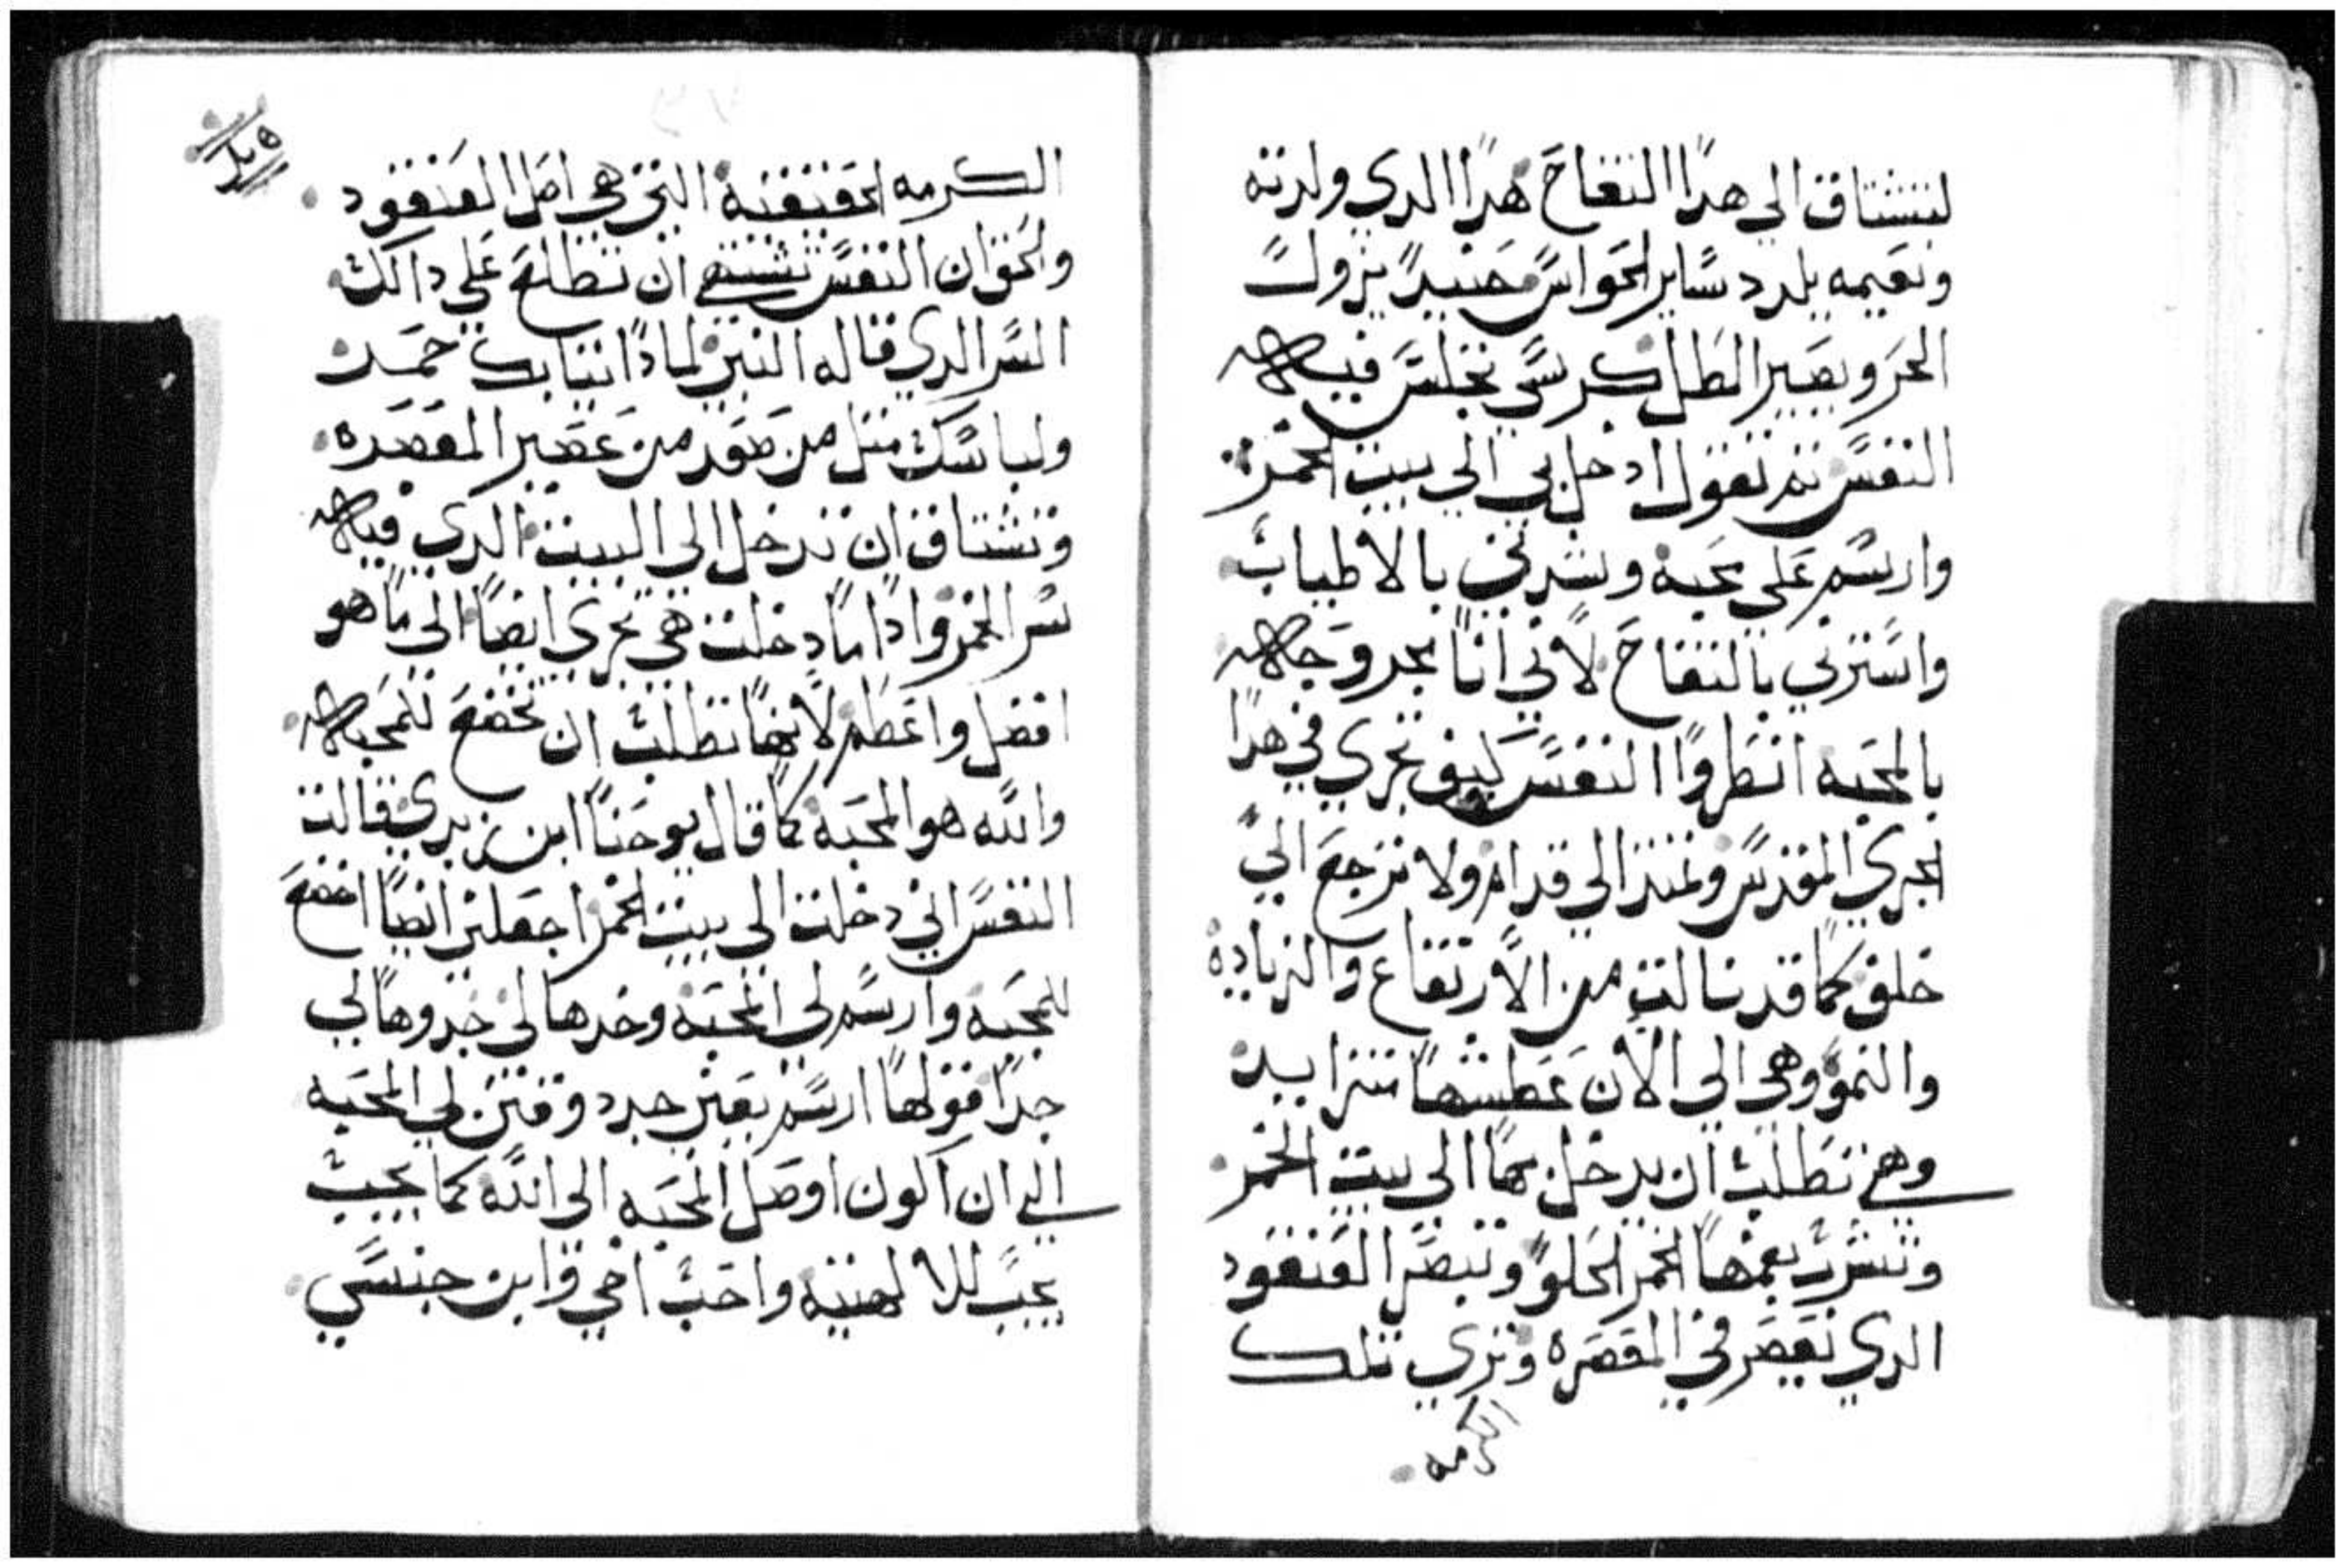 لتشتاق الي هدا التفاح هدا الدي ولدته
ونعيمه يلدد ساير الحواس حينيد يزول
الحر ويصير الظل كرسي تجلس فيه
النفس تم تقول ادخل بي الي بيت الخمر
وارسم علي محبه وشدني بالاطياب
واسترني بالتفاح لاني انا مجروحه
بالمحبه انظروا النفس كيف تجري في هدا
الجري المقدس وتمتد الي قدام ولا ترجع الي
خلف كما قد نالت من الارتفاع والزياده
والنمو وهي الي الان عطشها متزايد
وهي تطلب ان يدخل بها الي بيت الخمر
وتشرب بفمها الخمر الحلو وتبصر العنقود
الدي يعصر في المعصره وتري تلك
الكرمه
الكرمه الحقيقيه التي هي اصل العنقود
والحق ان النفس تشتهي ان تطلع علي دالك
السر الدي قاله النبي لمادا تيابك حمر
ولباسك متل من صعد من عصير المعصره
وتشتاق ان تدخل الي البيت الدي فيه
سر الخمر وادا ما دخلت هي تجري ايضا الي ما هو
افضل واعظم لانها تطلب ان تخضع للمحبه
والله هو المحبه كما قال يوحنا ابن زبدي قالت
النفس اني دخلت الي بيت الخمر اجعلني ايضا اخضع
للمحبه وارسم لي المحبه وخدها لي خدوها لي
جدا قولها ارسم يعني حدد وقنن لي المحبه
الي ان اكون اوصل المحبه الي الله كما يجب
يجب للالهيته واحب اخي وابن جنسي